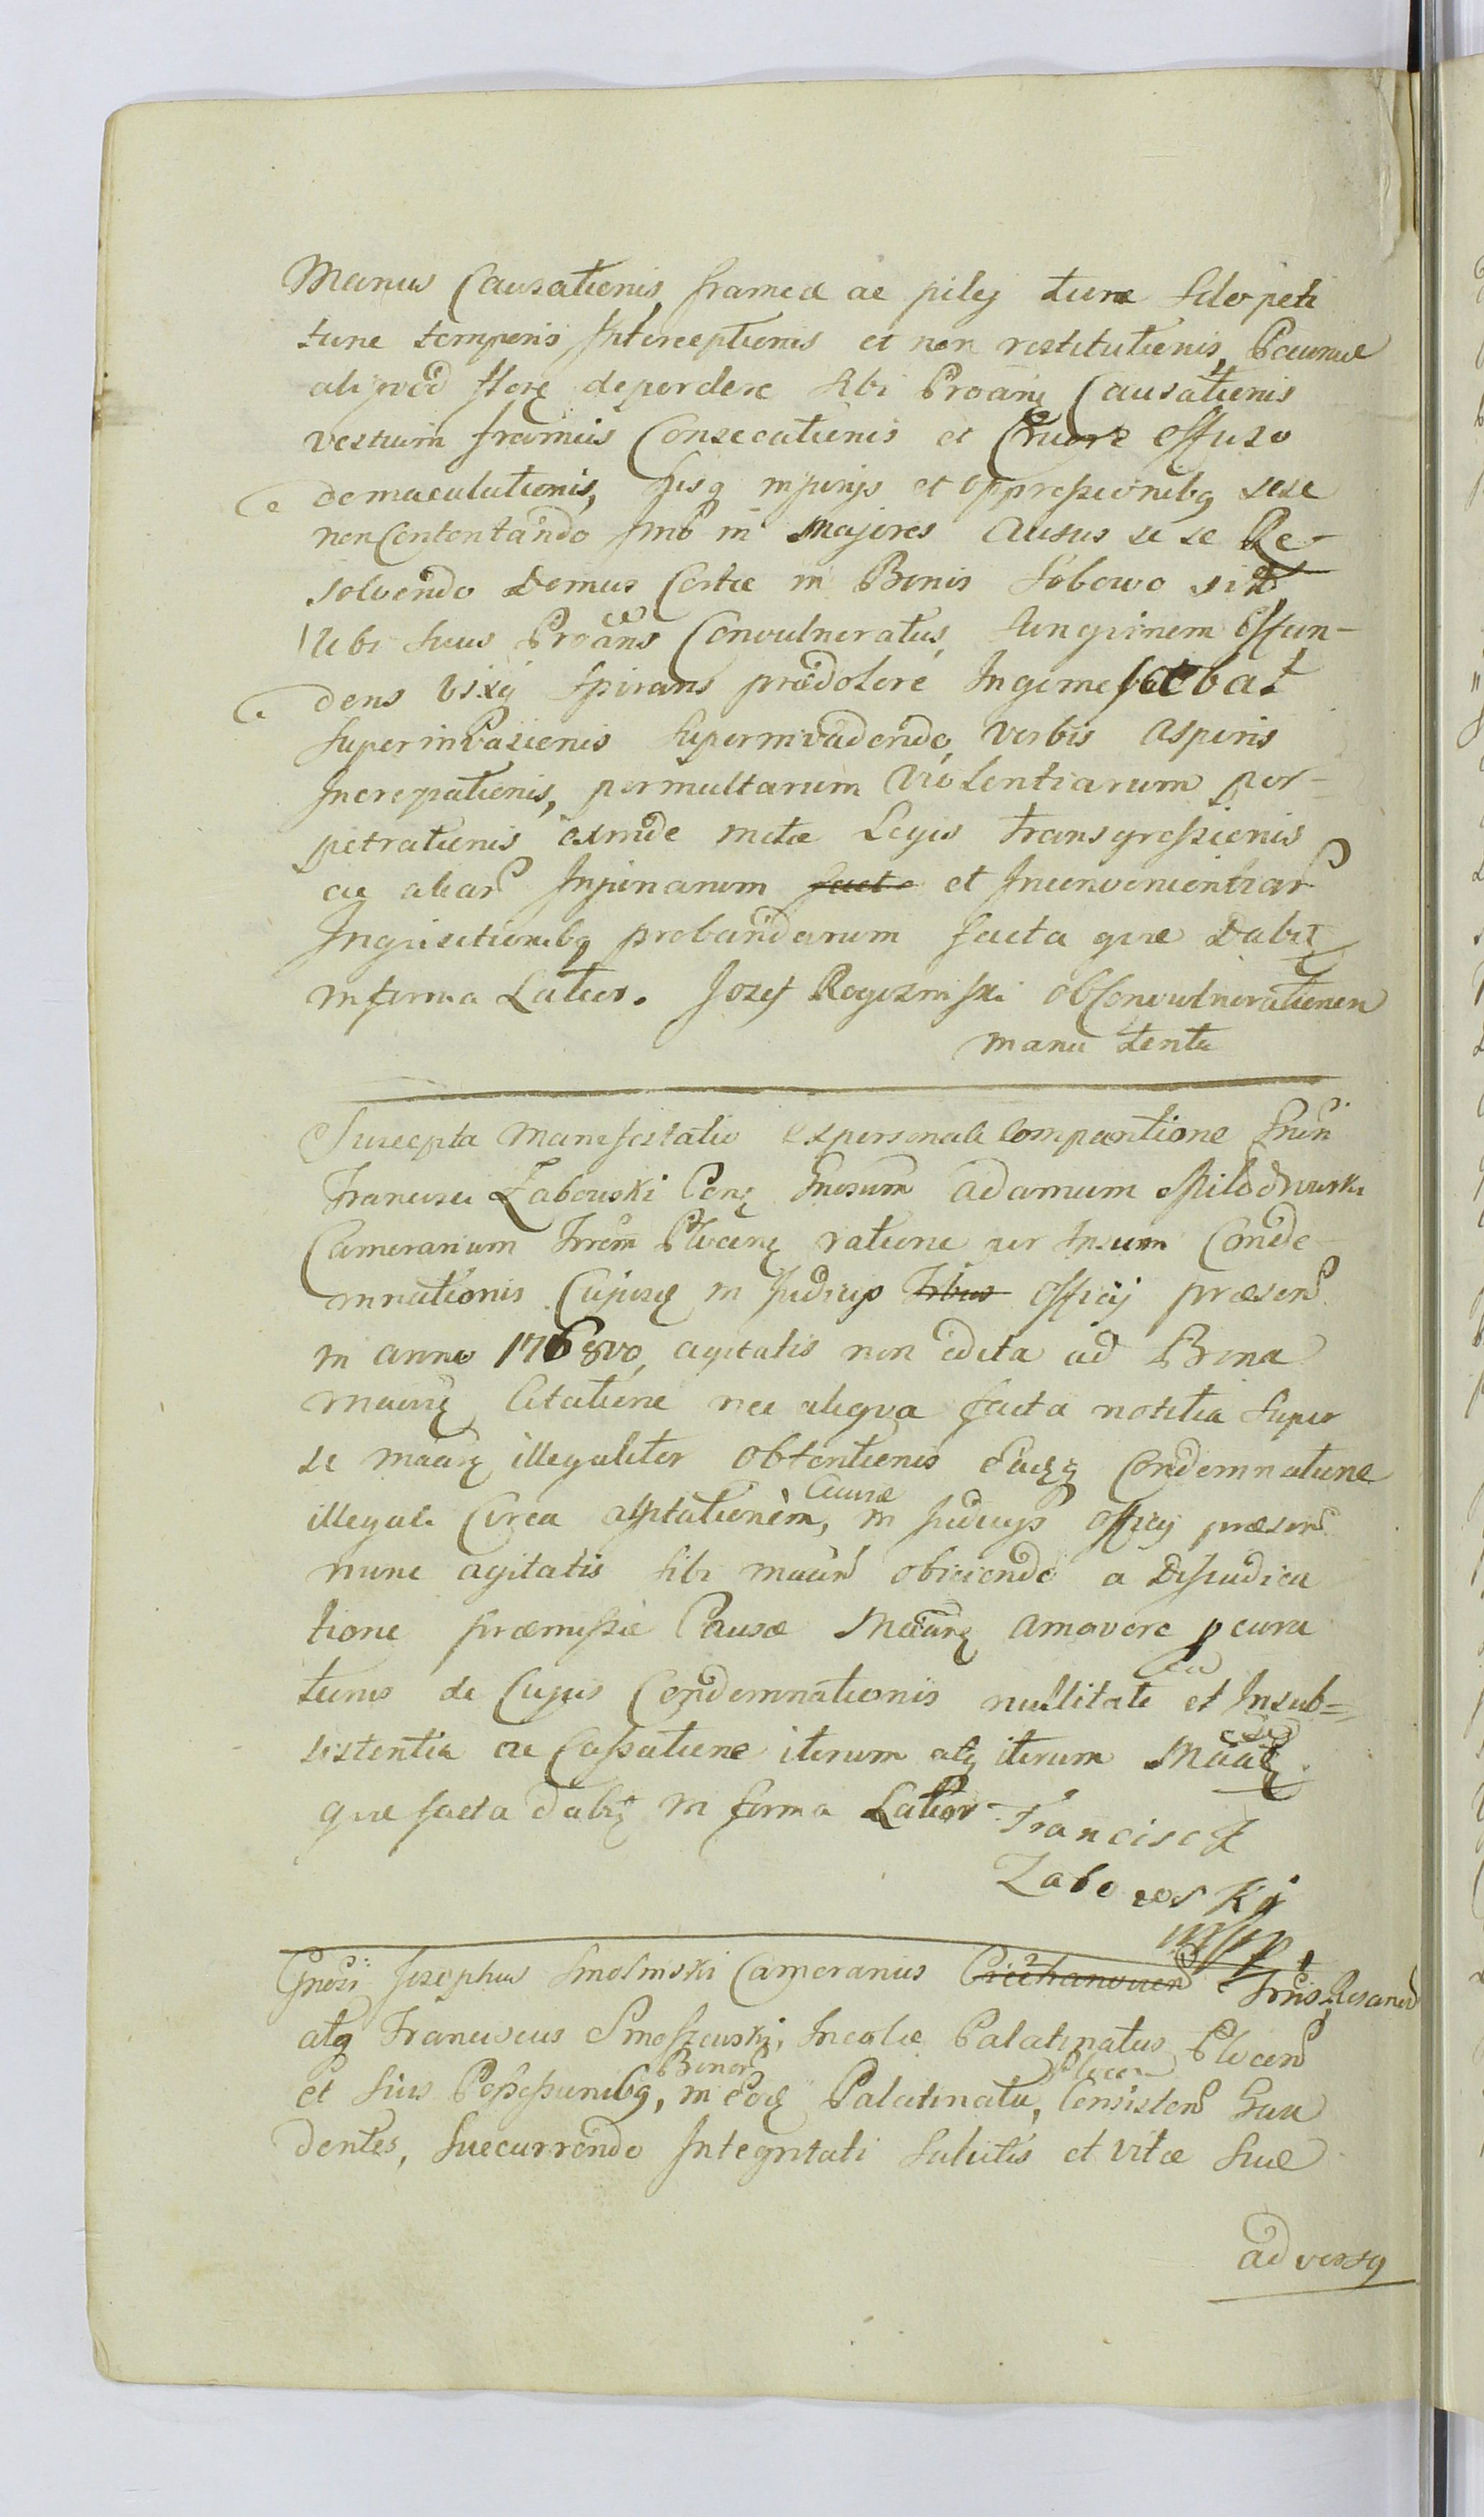 Manus Causationis, frameæ ac pilej tum sclopeti
tunc temporis Interceptionis et non restitutionis, Pecuniæ
aliquod flore deperdere sibi Proāng Causationis
vestium frameis Consecationis et Cruore effuso
demaculationis, hisq injurijs et oppressionibq sese
non Contentando Imo in Majores Ausus se se Re-
solvendo Domus Certæ in Bonis Łobowo sit
Ubi suus Proāns Convulneratus, Sangvinem effun-
dens vixq Spirans præ dolore Ingemescebat
Superinvasionis Superinvadendo, verbis asperis
Increpationis, permultarum Violentiarum per-
petrationis exinde metæ Legis transgressionis
ac aliar Injuriarum facta et Inconvenientiar
Inqvisitionibq probandarum facta qvæ Dabit
in forma Latior. Jozef Rogozinski ob Convulnerationem
manu tenta
Suscepta Manifestatio ex personali Comparitione Gnēn
Francisci Zabowski Conq Gnosum Adamum
Camerarium Trrēm Plocenq ratione per Ipsum Conde-
mnationis Cujusq in Judicijs Tribus officij præsen
in anno 1768vo, agitatis non edita ad Bona
Maanq Citatione nec aliqva facta notitia Super
se Maanq illegaliter obtentionis Eaqq Condemnatione
illegali Circa Causæ in Judicijs officij præsen
nunc agitatis sibi maan obiiciendo a Dijudica
tione præmissæ Causæ Maanq amovere pcura
turus de Cujus Condemnationis nullitate et Insub-
sistentia ac Cassatione iterum atq iterum
qvæ facta dabit in forma Latior Francisc
Zabowski
mpp
Gnosi Josephus Smolinski Camerarius Ciechanovien Trris Rosanen
atq Franciscus Smoszewski, Incolæ Palatinatus Plocen
et suis Possessionibq, Bonor in Eodq Palatinatu, Plocen Consisten Gau
dentes, Succurrendo Integritati Salutis et vitæ Suæ
adversq